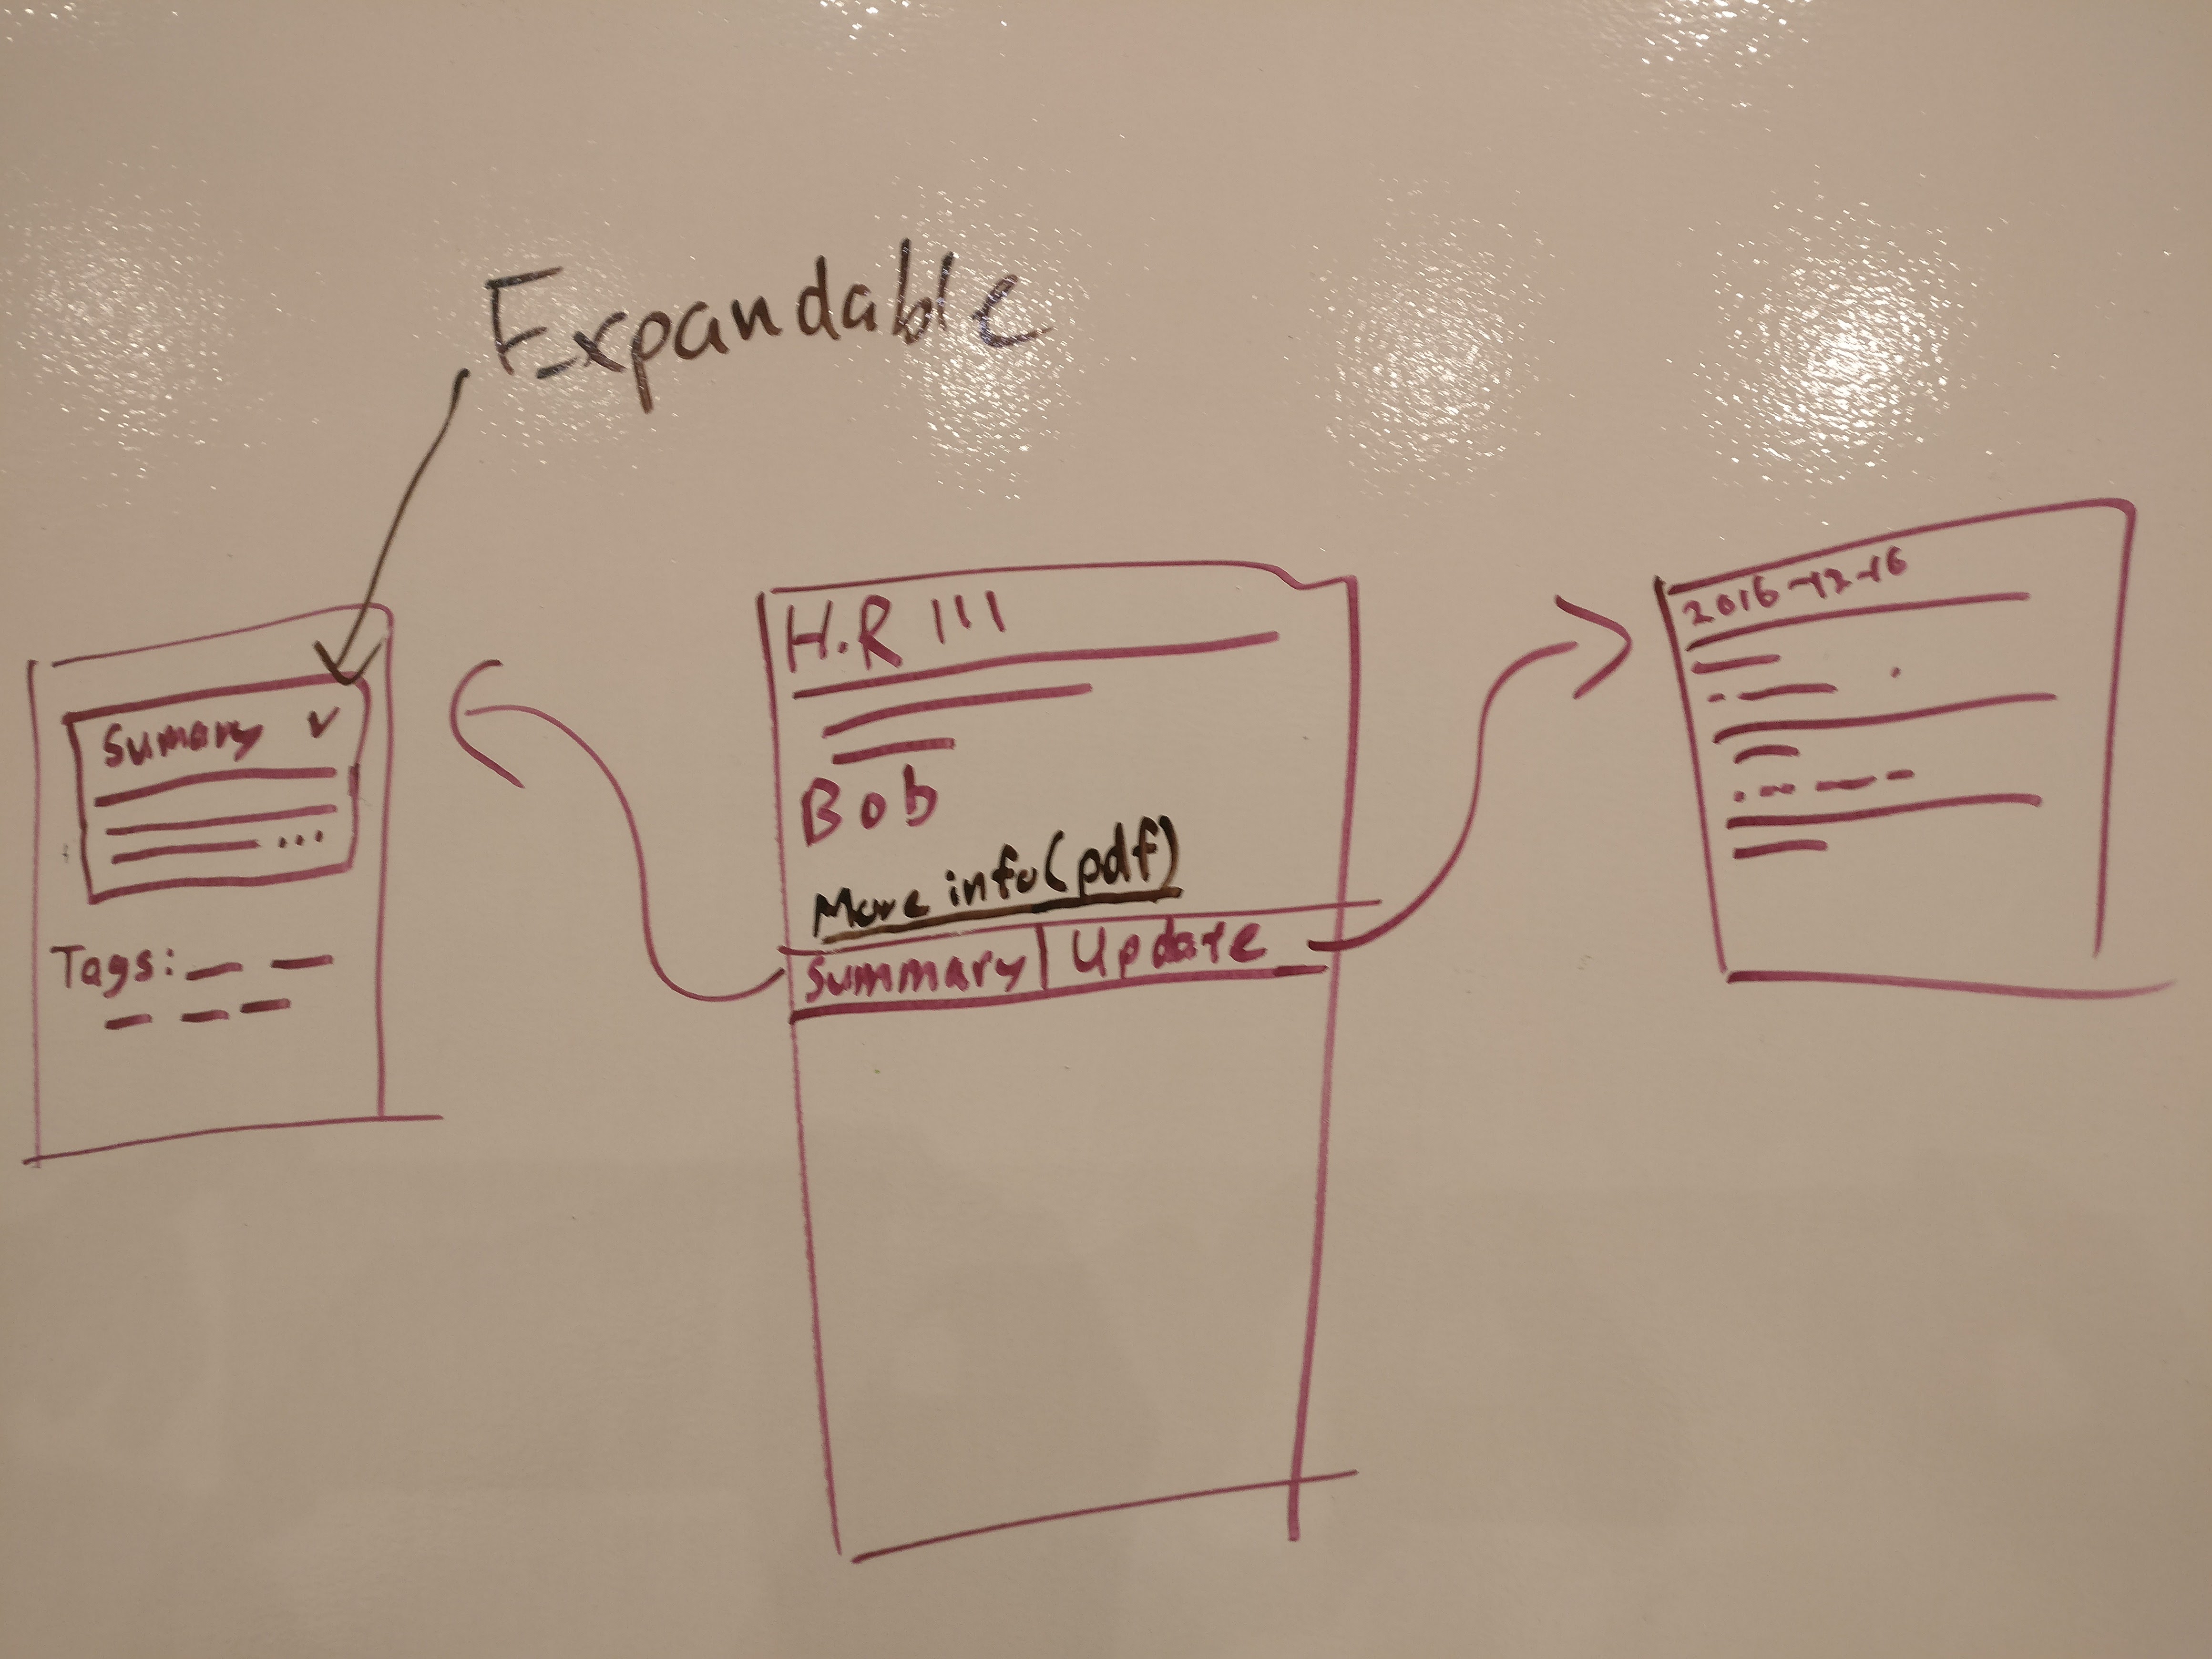 Expandable
Sumary
...
Tags:
H.R 111
Bob
More info (pdf)
Summary | Update
2016-12-16